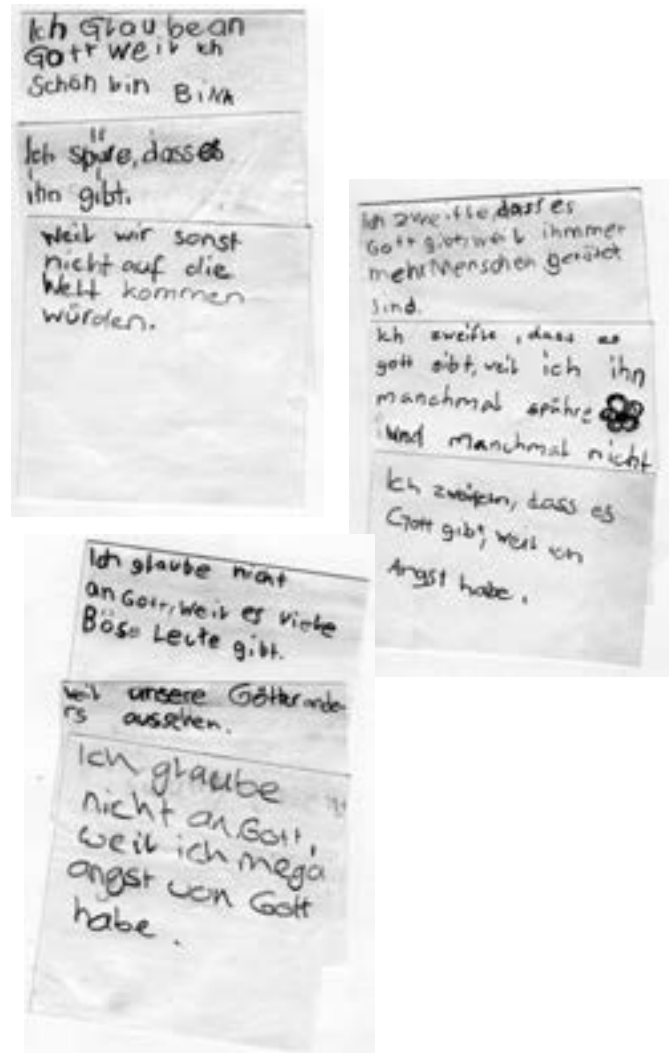 Ich Glaube an
Gott weil ich
Schön bin
Ich spüre, dass es
ihn gibt.
Weil wir sonst
nicht auf die
Welt kommen
würden.
Ich zweifle, dass es
Gott gibt, weil ihmmer
mehr Menschen getötet
sind.
Ich zweifle, dass es
gott gibt, weil ich ihn
manchmal spühre
und manchmal nicht
Ich zweifeln, dass es
Gott gibt, weil ich
Angst habe.
Ich glaube nicht
an Gott, weil es viele
Böse Leute gibt.
weil unsere Götter ande-
rs aussehen.
Ich glaube
nicht an Gott,
weil ich mega
angst von Gott
habe.